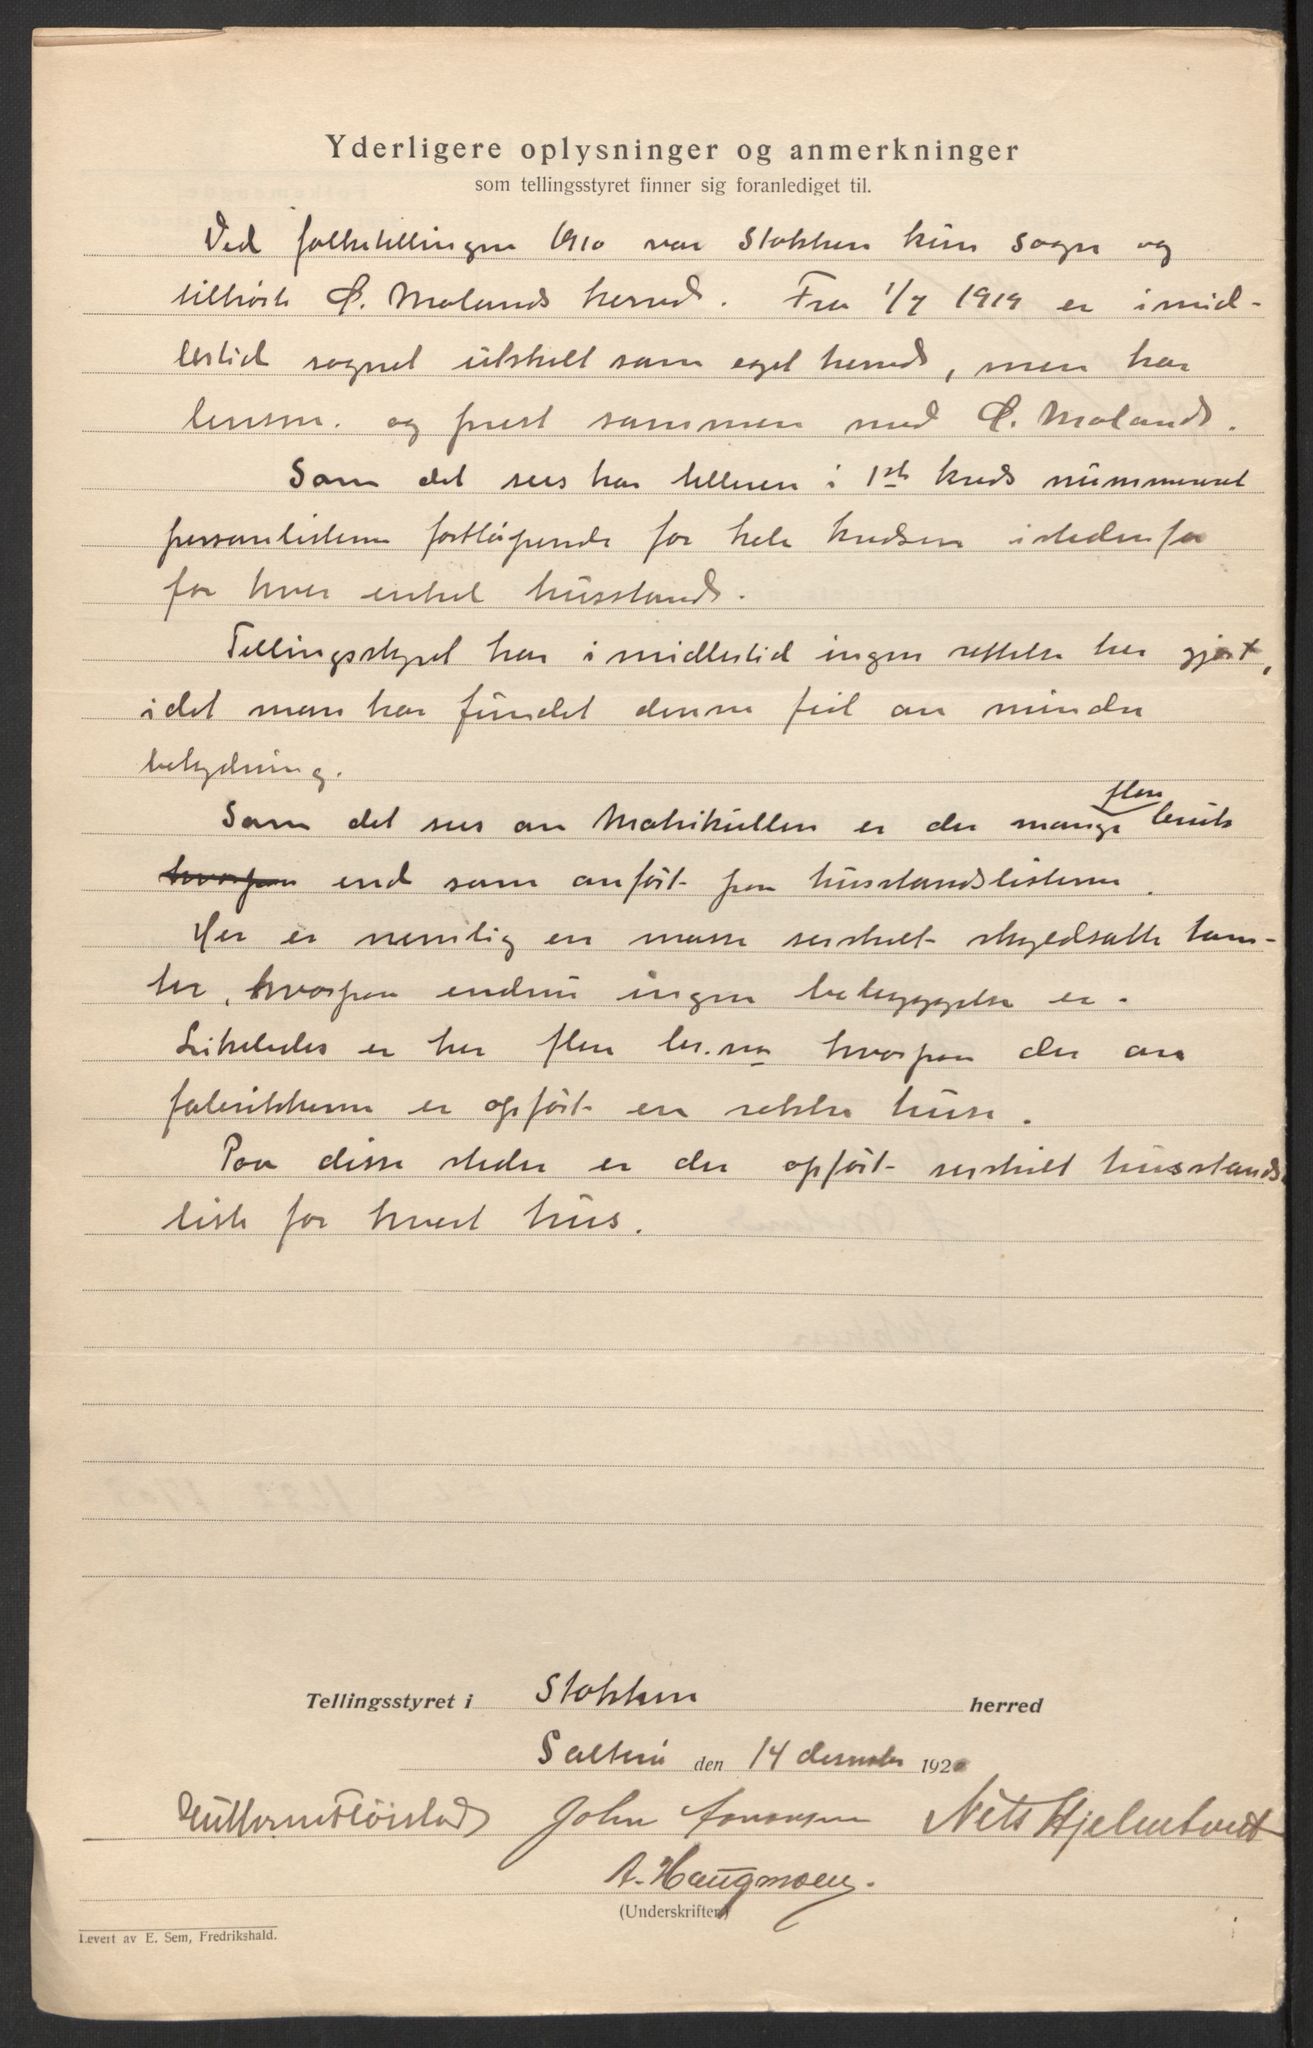 Yderligere oplysninger og anmerkninger
som tellingsstyret finner sig foranlediget til.
Ved folketellingen 1910 var Stokken kun sogn og
tilhørte Ø. Molands herred. Fra 1/7 1919 er imid-
lertid sognet utskilt som eget herred, men har
lensm. og prest sammen med Ø. Moland.
Som det sees har telleren i 1ste kreds nummereret
personlisterne fortløpende for hele kredsen istedenfor
for hver enkel husstand.
Tellingsstyret har imidlertid ingen rettelse her gjort,
idet man har fundet denne feil av mindre
betydning.
Som det sees av Matrikullen er der mange flere bruk
hvorpaa end som anført paa husstandslisterne.
Her er nemlig en masse serskilt skyldsatte tom-
ter, hvorpaa endnu ingen bebyggelse er.
Likeledes er her flere br.no hvorpaa der av
fabrikkerne er opført en rekke huse.
Paa disse steder er der opført serskilt husstands-
liste for hvert hus.
Tellingsstyret i Stokken herred
Saltrø den 14 desember 1920
Fløistad John Aanonsen Nils Hjelmtveit
A. Haugmoen.
(Underskrifter)
Levert av E. Sem, Fredrikshald.